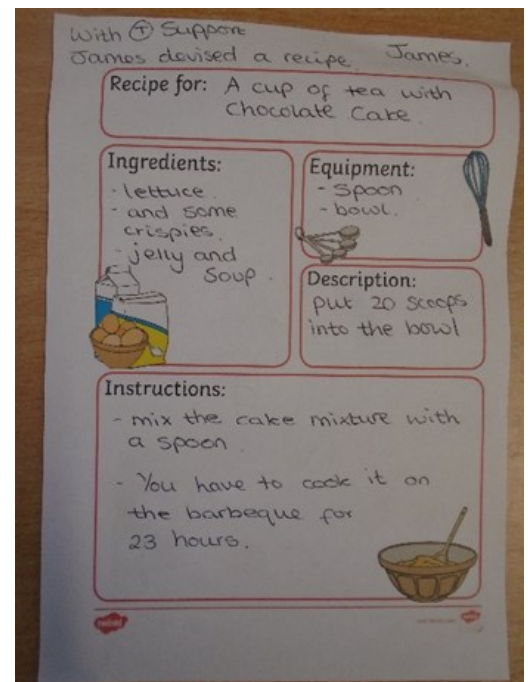 With Ⓣ Support
James devised a recipe. James.
Recipe for: A cup of tea with
Chocolate Cake.
Ingredients:
- lettuce.
- and some
crispies.
- jelly and
Soup.
Equipment:
- Spoon
- bowl.
Description:
put 20 scoops
into the bowl
Instructions:
- mix the cake mixture with
a spoon.
- You have to cook it on
the barbeque for
23 hours.
twinkl